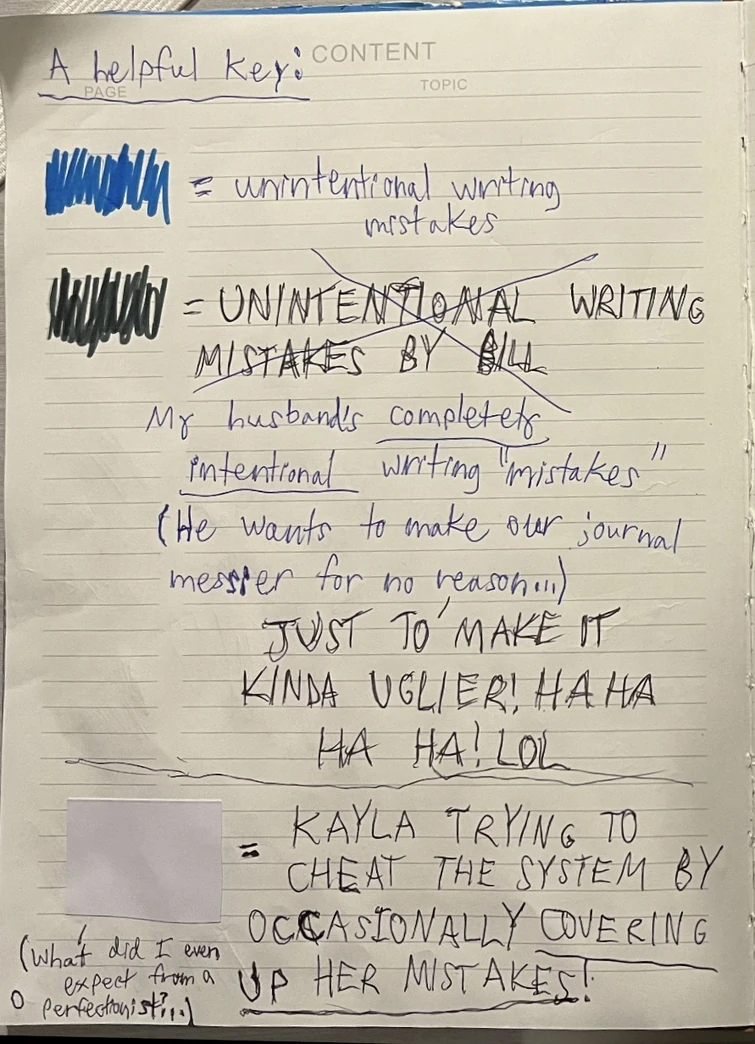 A helpful key:
CONTENT
PAGE
TOPIC
= unintentional writing
mistakes
= UNINTENTIONAL WRITING
MISTAKES BY BILL
My husband's completely
intentional writing "mistakes"
(He wants to make our journal
messier for no reason...)
JUST TO MAKE IT
KINDA UGLIER! HA HA
HA HA! LOL
= KAYLA TRYING TO
CHEAT THE SYSTEM BY
OCCASIONALLY COVERING
UP HER MISTAKES!
(What did I even
expect from a
perfectionist?...)